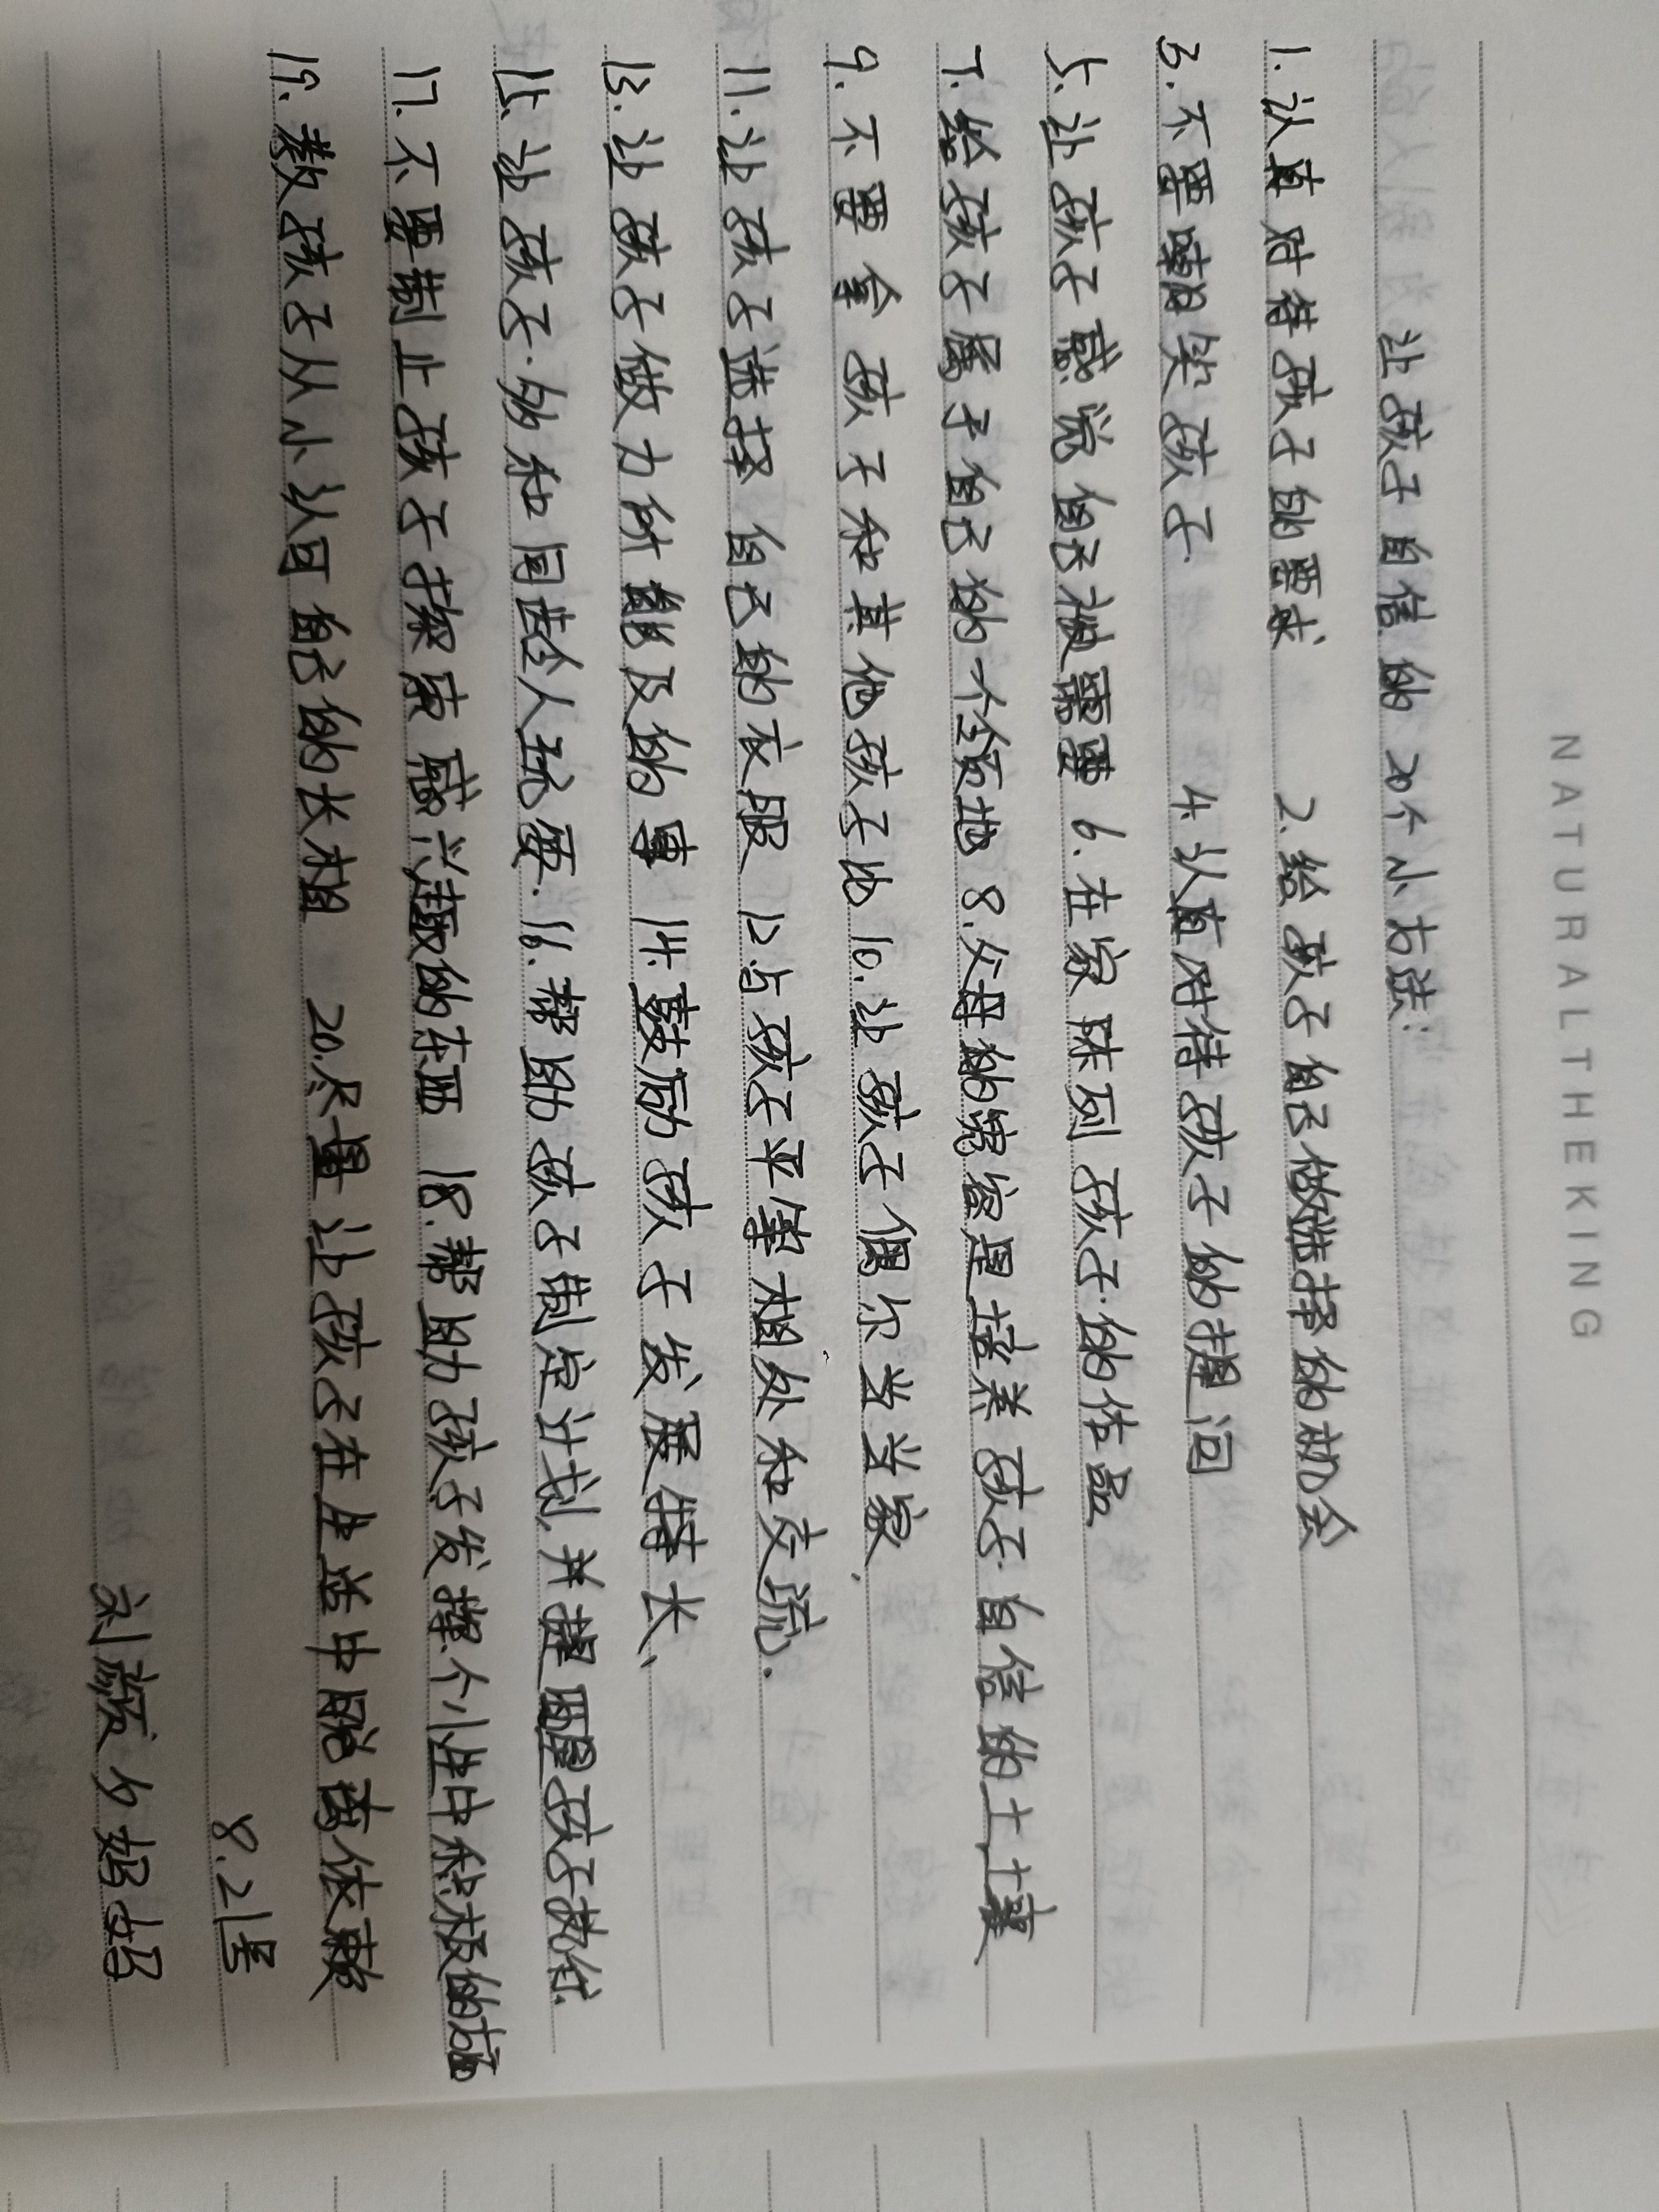 NATURALTHEKING
让孩子自信的20个小方法:
1.认真对待孩子的要求 2.给孩子自己做选择的机会
3.不要嘲笑孩子 4.认真对待孩子的提问
5.让孩子感觉自己被需要 6.在家陈列孩子的作品
7.给孩子属于自己的一个领地 8.父母的宽容是培养孩子自信的土壤
9.不要拿孩子和其他孩子比 10.让孩子偶尔当当家.
11.让孩子选择自己的衣服 12.与孩子平等相处和交流.
13.让孩子做力所能及的事 14.鼓励孩子发展特长、
15.让孩子多和同龄人玩耍. 16.帮助孩子制定计划,并提醒孩子执行.
17.不要制止孩子探索感兴趣的东西 18.帮助孩子发挥个性中积极的方面
19.教孩子从小认可自己的长相 20.尽量让孩子在生活中脱离依赖
8.21号
刘颜夕妈妈